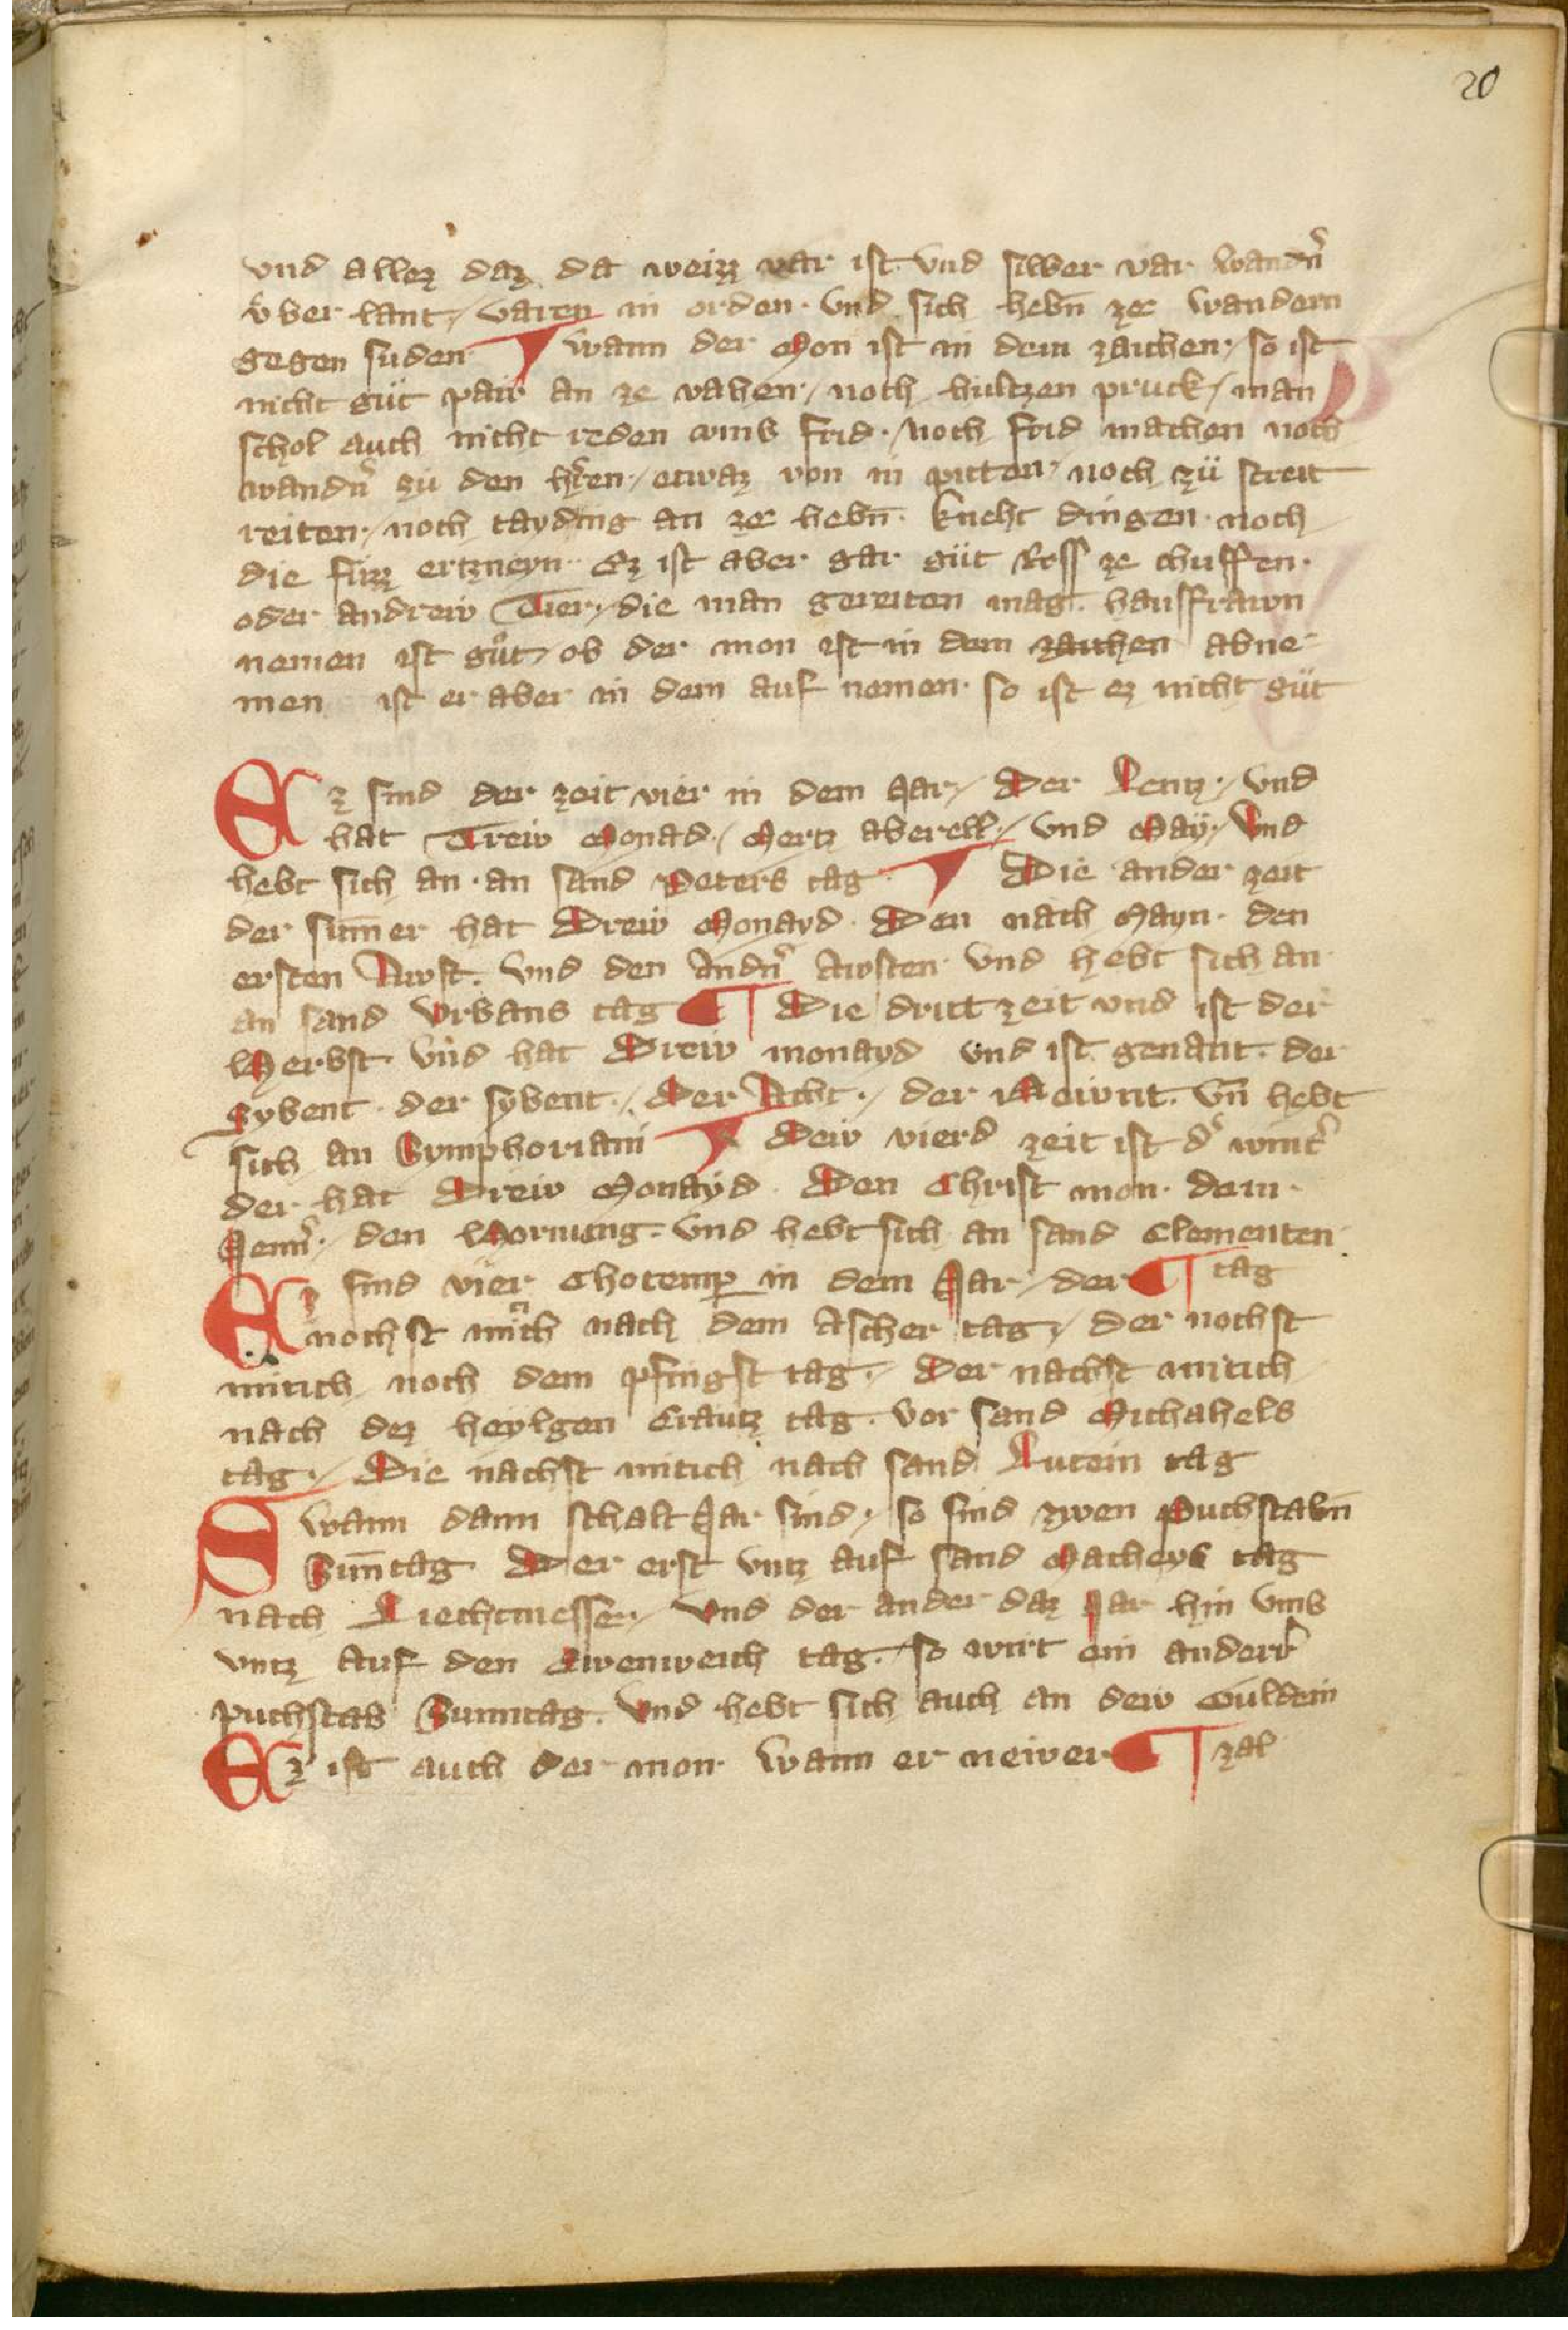 20
vnd allez daz da weizz var ist vnd silber var wandn̄
v̈ber lant / varen in orden · vnd sich hebn̄ ze wandern
gegen suden ¶ wann der Mon ist in dem zaichen · / so ist
nicht güt paw an ze vahen · / noch hültzen pruck / man
schol auch nicht reden vmb frid · / noch frid machen noch
wandn̄ zü den hren · / etwaz von in pitten · noch zü streit
reiten · / noch tayding an ze hebn̄ · kneht dingen · noch
die füzz ertzneyn · Ez ist aber gar güt Ross ze chuffen ·
oder andrew Tier · / die man gereiten mag · hausfrawn
nemen ist gůt / ob der mon ist in dem zaichen abne-
men ist er aber in dem auf nemen · so ist ez nicht güt
Ez sind der zeit vier in dem Jar / Der Lentz · / vnd
hat Trew Monad · / Mertz aberell · / vnd May · / Vnd
hebt sich an · an sand Peters tag ¶ Die ander zeit
der sum̄er hat Drew Monayd · Den nach Mayn · den
ersten Awst · vnd den Andn̄ awsten vnd hebt sich an
an sand Vrbans tag ¶ Die dritt zeit vnd ist der
Herbst · vnd hat Drew monayd vnd ist genant · der
Sybent · der sybent · / Der Acht · / der Newnt · vn̄ hebt
sich an Symphoriani ¶ Dew vierd zeit ist d' wint'
der hat Drew Monayd · Den Christ mon · dem ·
Jenn' · / den Hornung · vnd hebt sich an sand Clementen
Ez sind vier Chotemp in dem Jar / der ¶ tag
nochst mitich nach dem Ascher tag / der nochst
mitich noch dem pfingst tag · / Der nachst mitich
nach dez heylgen Crautz tag · vor sand Michahels
tag · / Die nachst mitich nach sand Lucein tag
Swann dann schalt Jar sind · / so sind zwen Puchstabn̄
Sun̄tag · Der erst vntz auf sand Matheys tag
nach Liechtmessen / vnd der ander daz Jar hin vmb
vntz auf den Ewenweich tag · / so wirt ein anderr
puchstab Sunntag · vnd hebt sich auch an dew Guldein
Ez ist auch der mon · wann er newer ¶ zal